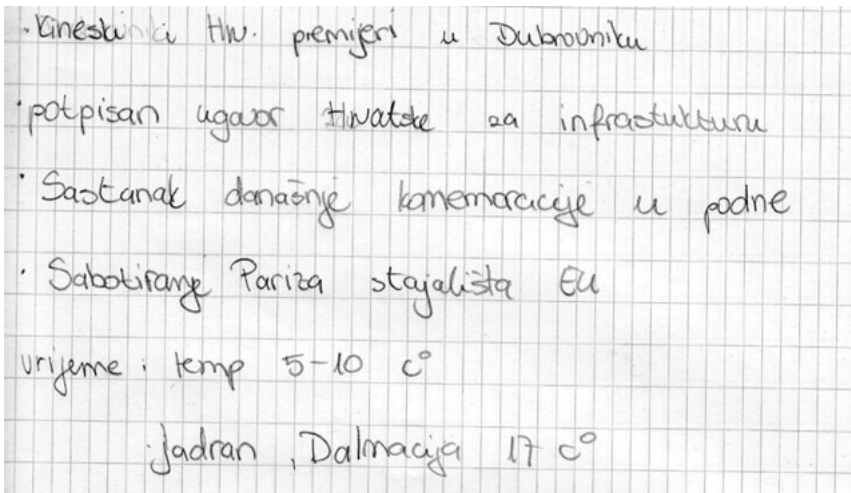 · Kineski i Hrv. premijeri u Dubrovniku
· potpisan ugovor Hrvatske za infrastukturu
· Sastanak današnje komemoracije u podne
· Sabotiranje Pariza stajališta EU
vrijeme : temp 5-10 c°
Jadran , Dalmacija 17 c°